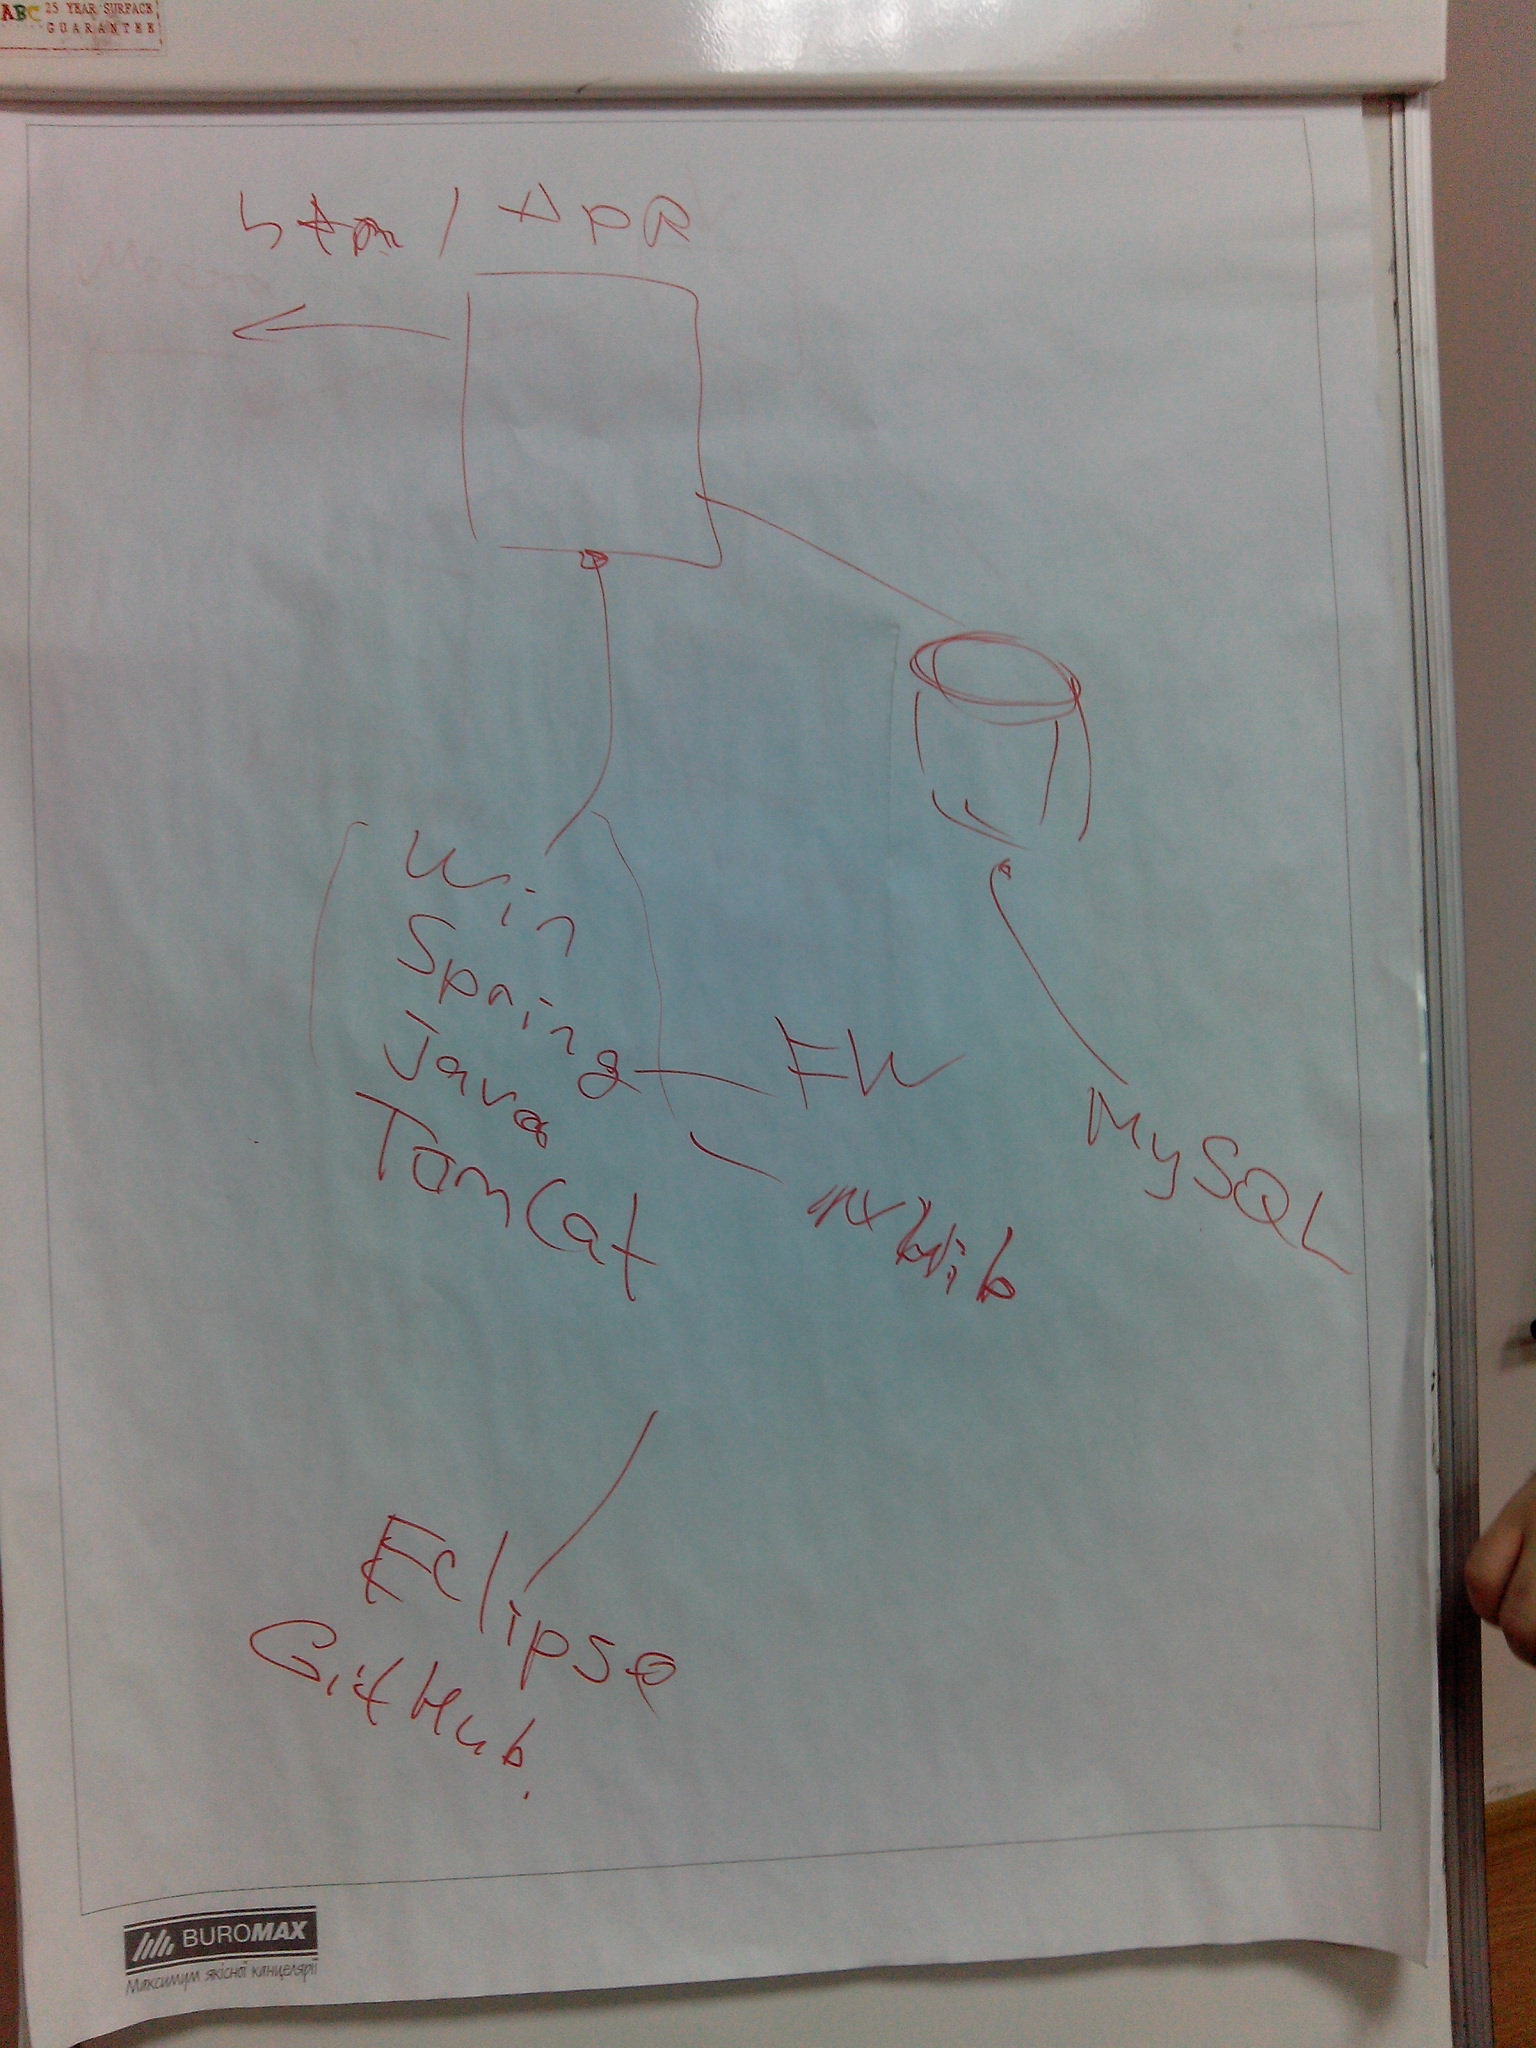 ABC 25 YEAR SURFACE
GUARANTEE
/ App
Win
Spring
Java
TomCat
FW
MySQL
Eclipse
GitHub.
BUROMAX
Максимум якісної канцелярії